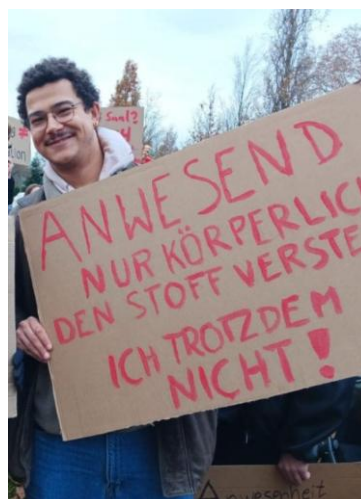 ion
Saal?
4
ANWESEND
NUR KÖRPERLICH
DEN STOFF VERSTE
ICH TROTZDEM
NICHT!
Anwesenheit